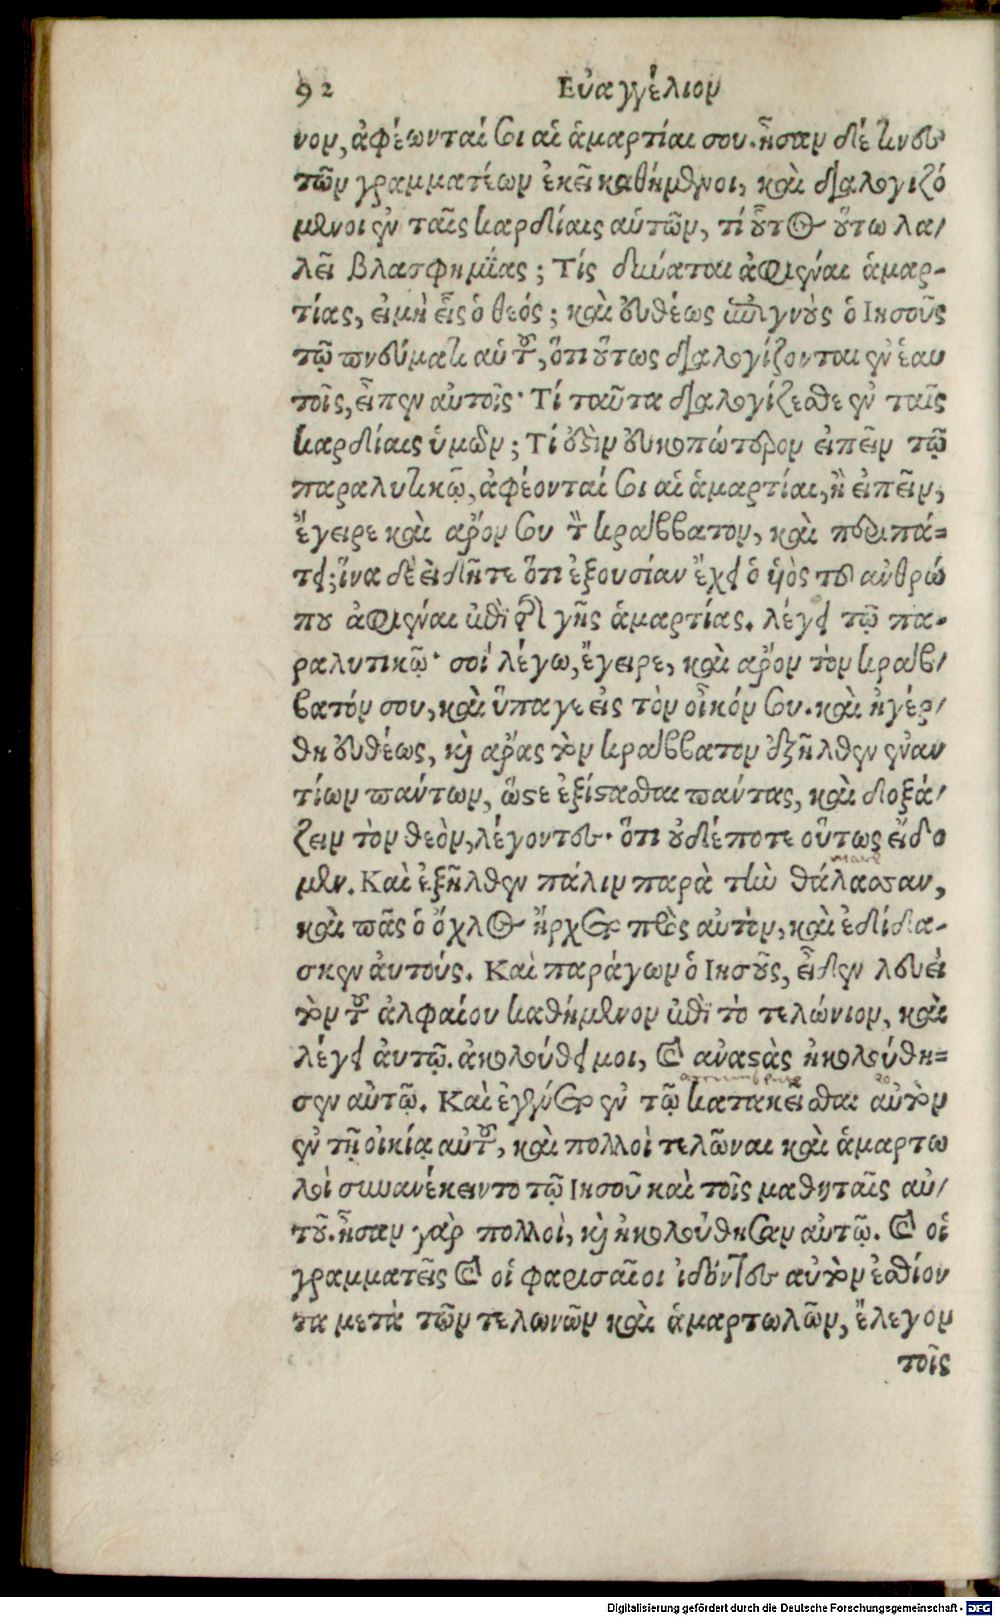 92 Εὐαγγέλιον
νον, ἀφέωνταί σοι αἱ ἁμαρτίαι σου. ἦσαν δέ τινες
τῶν γραμματέων ἐκεῖ καθήμενοι, καὶ διαλογιζό
μενοι ἐν ταῖς καρδίαις αὑτῶν, τί οὗτος οὕτω λα/
λεῖ βλασφημίας; Τίς δύναται ἀφιέναι ἁμαρ-
τίας, εἰμὴ εἷς ὁ θεός; καὶ εὐθέως ἐπιγνοὺς ὁ Ιησοῦς
τῷ πνεύματι αὑτοῦ, ὅτι οὕτως διαλογίζονται ἐν ἑαυ
τοῖς, εἶπεν αὐτοῖς· Τί ταῦτα διαλογίζεσθε ἐν ταῖς
καρδίαις ὑμῶν; Τί ἐςὶν εὐκοπώτερον εἰπεῖν τῷ
παραλυτικῷ, ἀφέονταί σοι αἱ ἁμαρτίαι, ἢ εἰπεῖν,
ἔγειρε καὶ ἆρόν σου τὸν κράββατον, καὶ περιπά=
τει; ἵνα δὲ εἰδῆτε ὅτι ἐξουσίαν ἔχει ὁ ὑὸς τοῦ ἀνθρώ
που ἀφιέναι ἐπὶ τῆς γῆς ἁμαρτίας. λέγει τῷ πα-
ραλυτικῷ· σοί λέγω, ἔγειρε, καὶ ἆρον τὸν κράβ/
βατόν σου, καὶ ὕπαγε εἰς τὸν οἶκόν σου. καὶ ἠγέρ/
θη εὐθέως, καὶ ἄρας τὸν κράββατον ἐξῆλθεν ἐναν
τίων πάντων, ὥςε ἐξίςασθαι πάντας, καὶ δοξά/
ζειν τὸν θεὸν, λέγοντες· ὅτι οὐδέποτε οὕτως εἴδο
μεν. Καὶ ἐξῆλθεν πάλιν παρὰ τὴν θάλασσαν,
καὶ πᾶς ὁ ὄχλος ἤρχετο πρὸς αὐτὸν, καὶ ἐδίδα-
σκεν ἀυτούς. Καὶ παράγων ὁ Ιησοῦς, εἶδεν λευεὶ
τὸν τοῦ ἀλφαίου καθήμενον ἐπὶ τὸ τελώνιον, καὶ
λέγει ἀυτῷ. ἀκολούθει μοι, καὶ ἀναςὰς ἠκολούθη=
σεν αὐτῷ. Καὶ ἐγένετο ἐν τῷ κατακεῖσθαι αὐτὸν
ἐν τῇ οἰκίᾳ αὐτοῦ, καὶ πολλοὶ τελῶναι καὶ ἁμαρτω
λοὶ συνανέκειντο τῷ Ιησοῦ καὶ τοῖς μαθηταῖς αὐ/
τοῦ. ἦσαν γὰρ πολλοὶ, καὶ ἠκολούθησαν αὐτῷ. καὶ οἱ
γραμματεῖς καὶ οἱ φαρισαῖοι ἰδόντες αὐτὸν ἐσθίον
τα μετὰ τῶν τελωνῶν καὶ ἁμαρτωλῶν, ἔλεγον
τοῖς
Digitalisierung gefördert durch die Deutsche Forschungsgemeinschaft - DFG